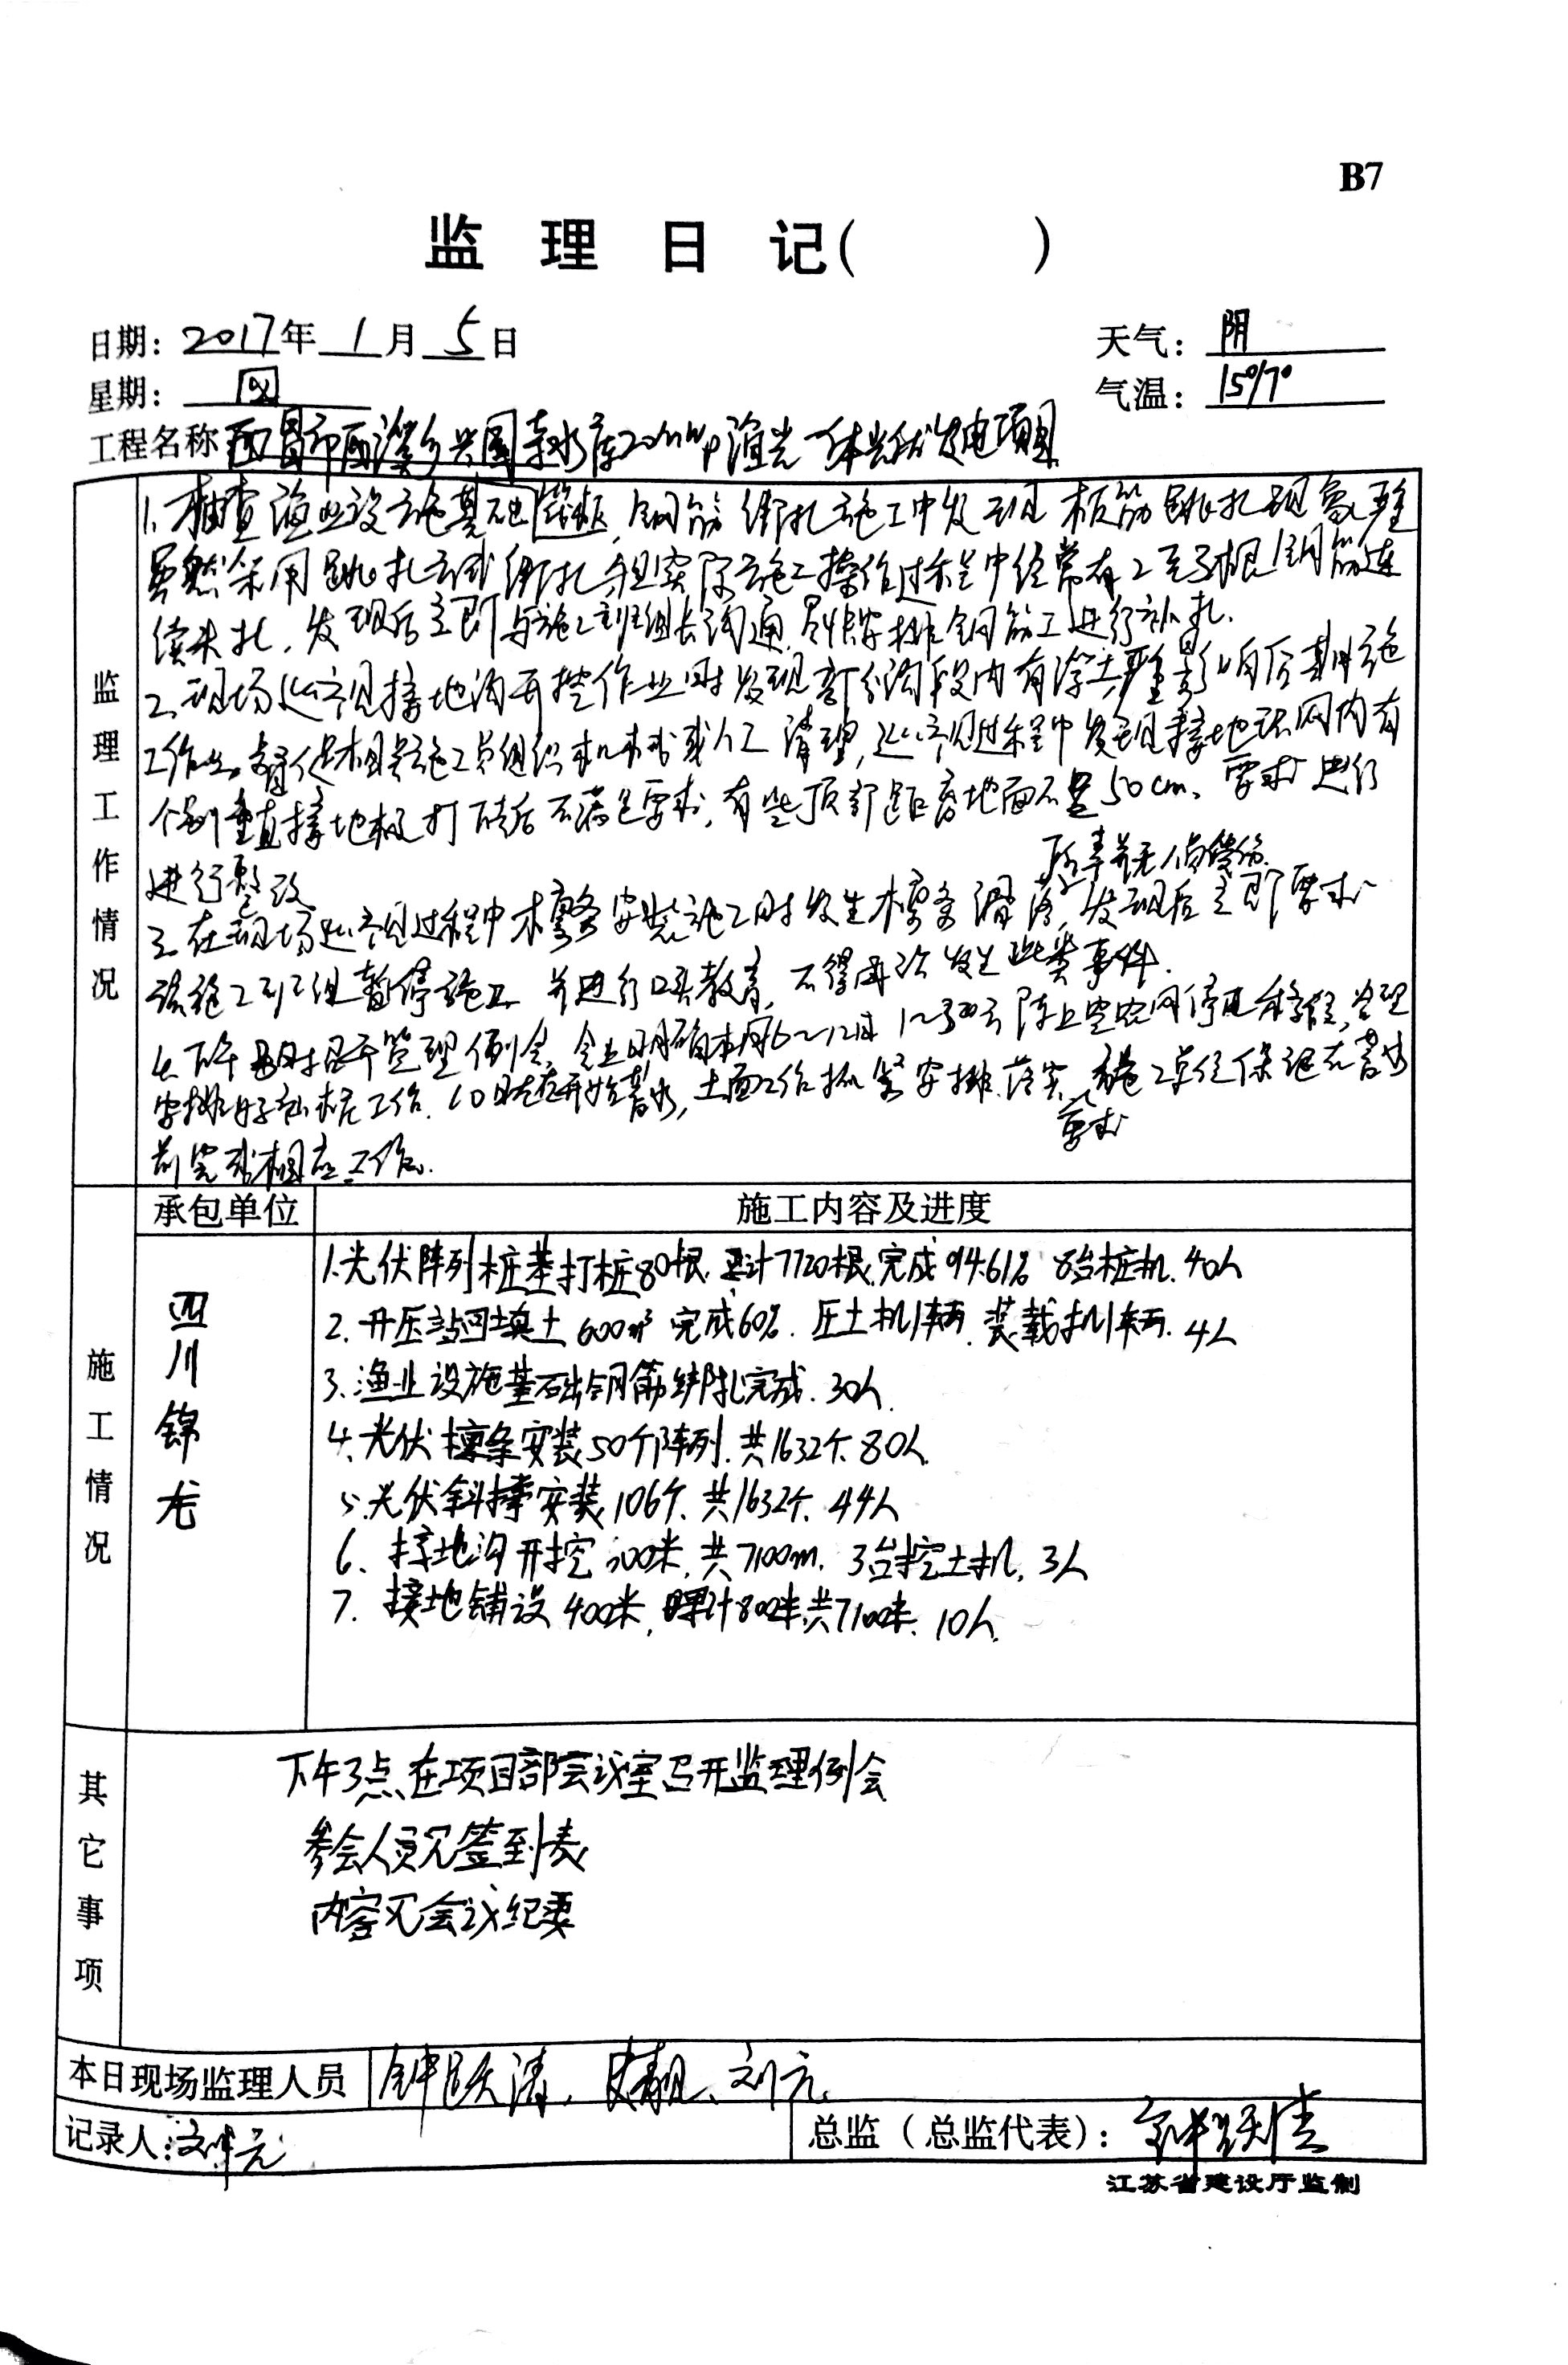 B7
监理日记(  )
日期：2017年1月5日
天气：阴
星期：四
气温：15°/7°
工程名称 西昌市西溪乡兴国寺水库20MWp渔光一体光伏发电项目
监理工作情况
1、抽查渔业设施基础筏板，钢筋绑扎施工中发现板筋跳扎现象严重
虽然采用跳扎方式绑扎，但实际施工操作过程中经常有2至3根钢筋连
续未扎，发现后立即与施工班组长沟通，尽快安排钢筋工进行补扎．
2、现场巡视接地沟开挖作业时发现部分沟段内有淤土严重影响后期施
工作业，督促相关施工员组织机械或人工清理，巡视过程中发现接地环网内有
个别垂直接地极打砸后不满足要求，有些顶部距离地面不足50cm、要求进行
进行整改
3、在现场巡视过程中木檩条安装施工时发生檩条滑落，发现后立即要求
所幸并无人员受伤
该施工班组暂停施工 并进行口头教育，不得再次发生此类事件．
4、下午 召开管理例会，会上明确本月6～12日 停电 合理
安排好 工作．10日左右开始蓄水，土面工作抓紧安排落实，施工单位保证在蓄水
要求
前完成相应工作．
承包单位
施工内容及进度
施工情况
四川锦龙
1.光伏阵列桩基打桩80根．累计7720根．完成94.61% 8台桩机．40人
2、升压站回填土600m³完成60%．压土机1辆．装载机1辆．4人
3、渔业设施基础钢筋绑扎完成．30人
4、光伏檩条安装50个阵列．共1632个．80人
5、光伏斜撑安装106个．共1632个．44人
6、接地沟开挖300米，共7100m．3台挖土机，3人
7、接地铺设400米，累计800米，共7100米．10人
其它事项
下午3点在项目部会议室召开监理例会
参会人员见签到表
内容见会议纪要
本日现场监理人员 钟跃涛、 、刘元
记录人：刘元
总监（总监代表）：钟跃涛
江苏省建设厅监制